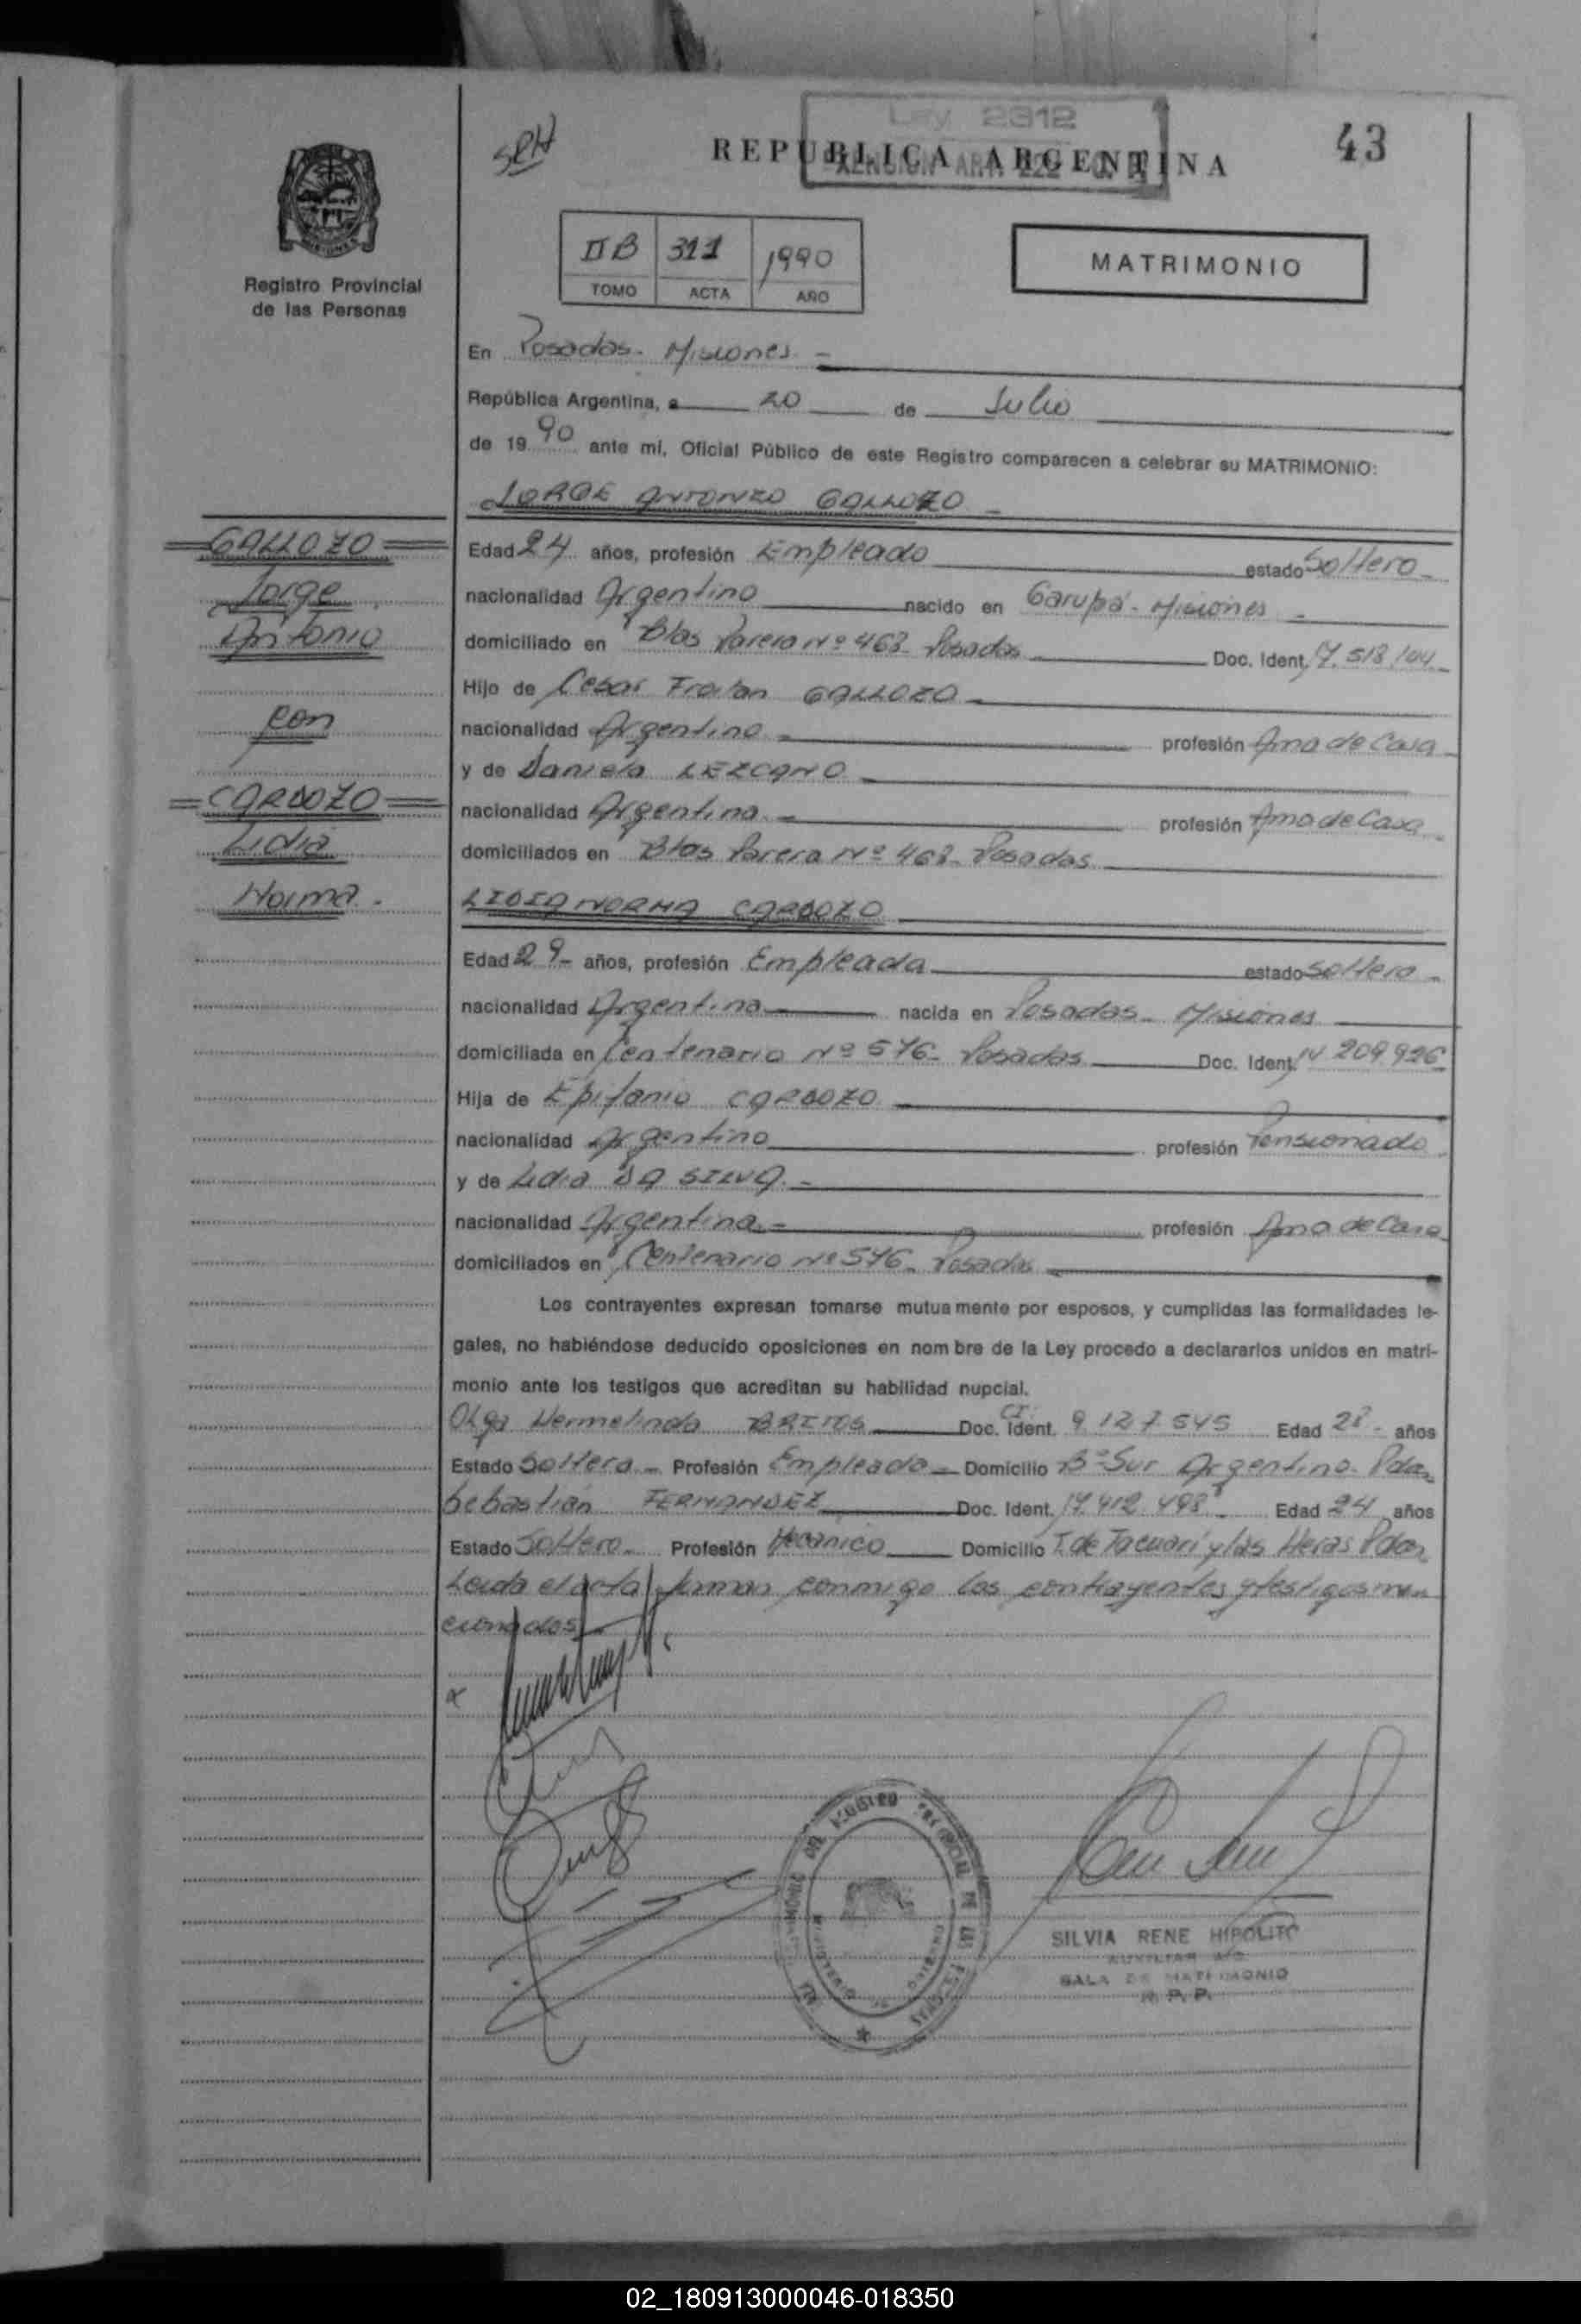 Ley 2312
EXENCION ART. 222
SRH
REPUBLICA ARGENTINA
43
Registro Provincial
de las Personas
II B 311 1990
TOMO ACTA AÑO
MATRIMONIO
En Posadas - Misiones -
República Argentina, a 20 de Julio
de 1990 ante mi, Oficial Público de este Registro comparecen a celebrar su MATRIMONIO:
JORGE ANTONIO GALLOZO -
GALLOZO
Jorge
Antonio
con
CARDOZO
Lidia
Norma -
Edad 24 años, profesión Empleado estado Soltero -
nacionalidad Argentino nacido en Garupá - Misiones -
domiciliado en Blas Parera Nº 463 - Posadas Doc. Ident. 17.518.104 -
Hijo de Cesar Froilan GALLOZO -
nacionalidad Argentina - profesión Ama de Casa -
y de Daniela LEZCANO
nacionalidad Argentina - profesión Ama de Casa -
domiciliados en Blas Parera Nº 463 - Posadas
LIDIA NORMA CARDOZO
Edad 29 - años, profesión Empleada estado Soltera -
nacionalidad Argentina nacida en Posadas - Misiones
domiciliada en Centenario Nº 576 - Posadas Doc. Ident. 14.209.926
Hija de Epifanio CARDOZO
nacionalidad Argentino profesión Pensionado
y de Lidia DA SILVA -
nacionalidad Argentina - profesión Ama de Casa
domiciliados en Centenario Nº 576 - Posadas
Los contrayentes expresan tomarse mutuamente por esposos, y cumplidas las formalidades le-
gales, no habiéndose deducido oposiciones en nombre de la Ley procedo a declararlos unidos en matri-
monio ante los testigos que acreditan su habilidad nupcial.
Olga Hermelinda BRITOS Doc. Ident. CI. 9.127.545 Edad 28 - años
Estado Soltera - Profesión Empleada - Domicilio Bº Sur Argentino - Pdas
Sebastián FERNANDEZ Doc. Ident. 17.412.498 Edad 24 años
Estado Soltero - Profesión Mecánico Domicilio T. de Tacuarí y las Heras Pdas
Leida el acta firman conmigo los contrayentes y testigos men
cionados -
SILVIA RENE HIPOLITO
AUXILIAR
SALA DE MATRIMONIO
R. P. P.
02_180913000046-018350